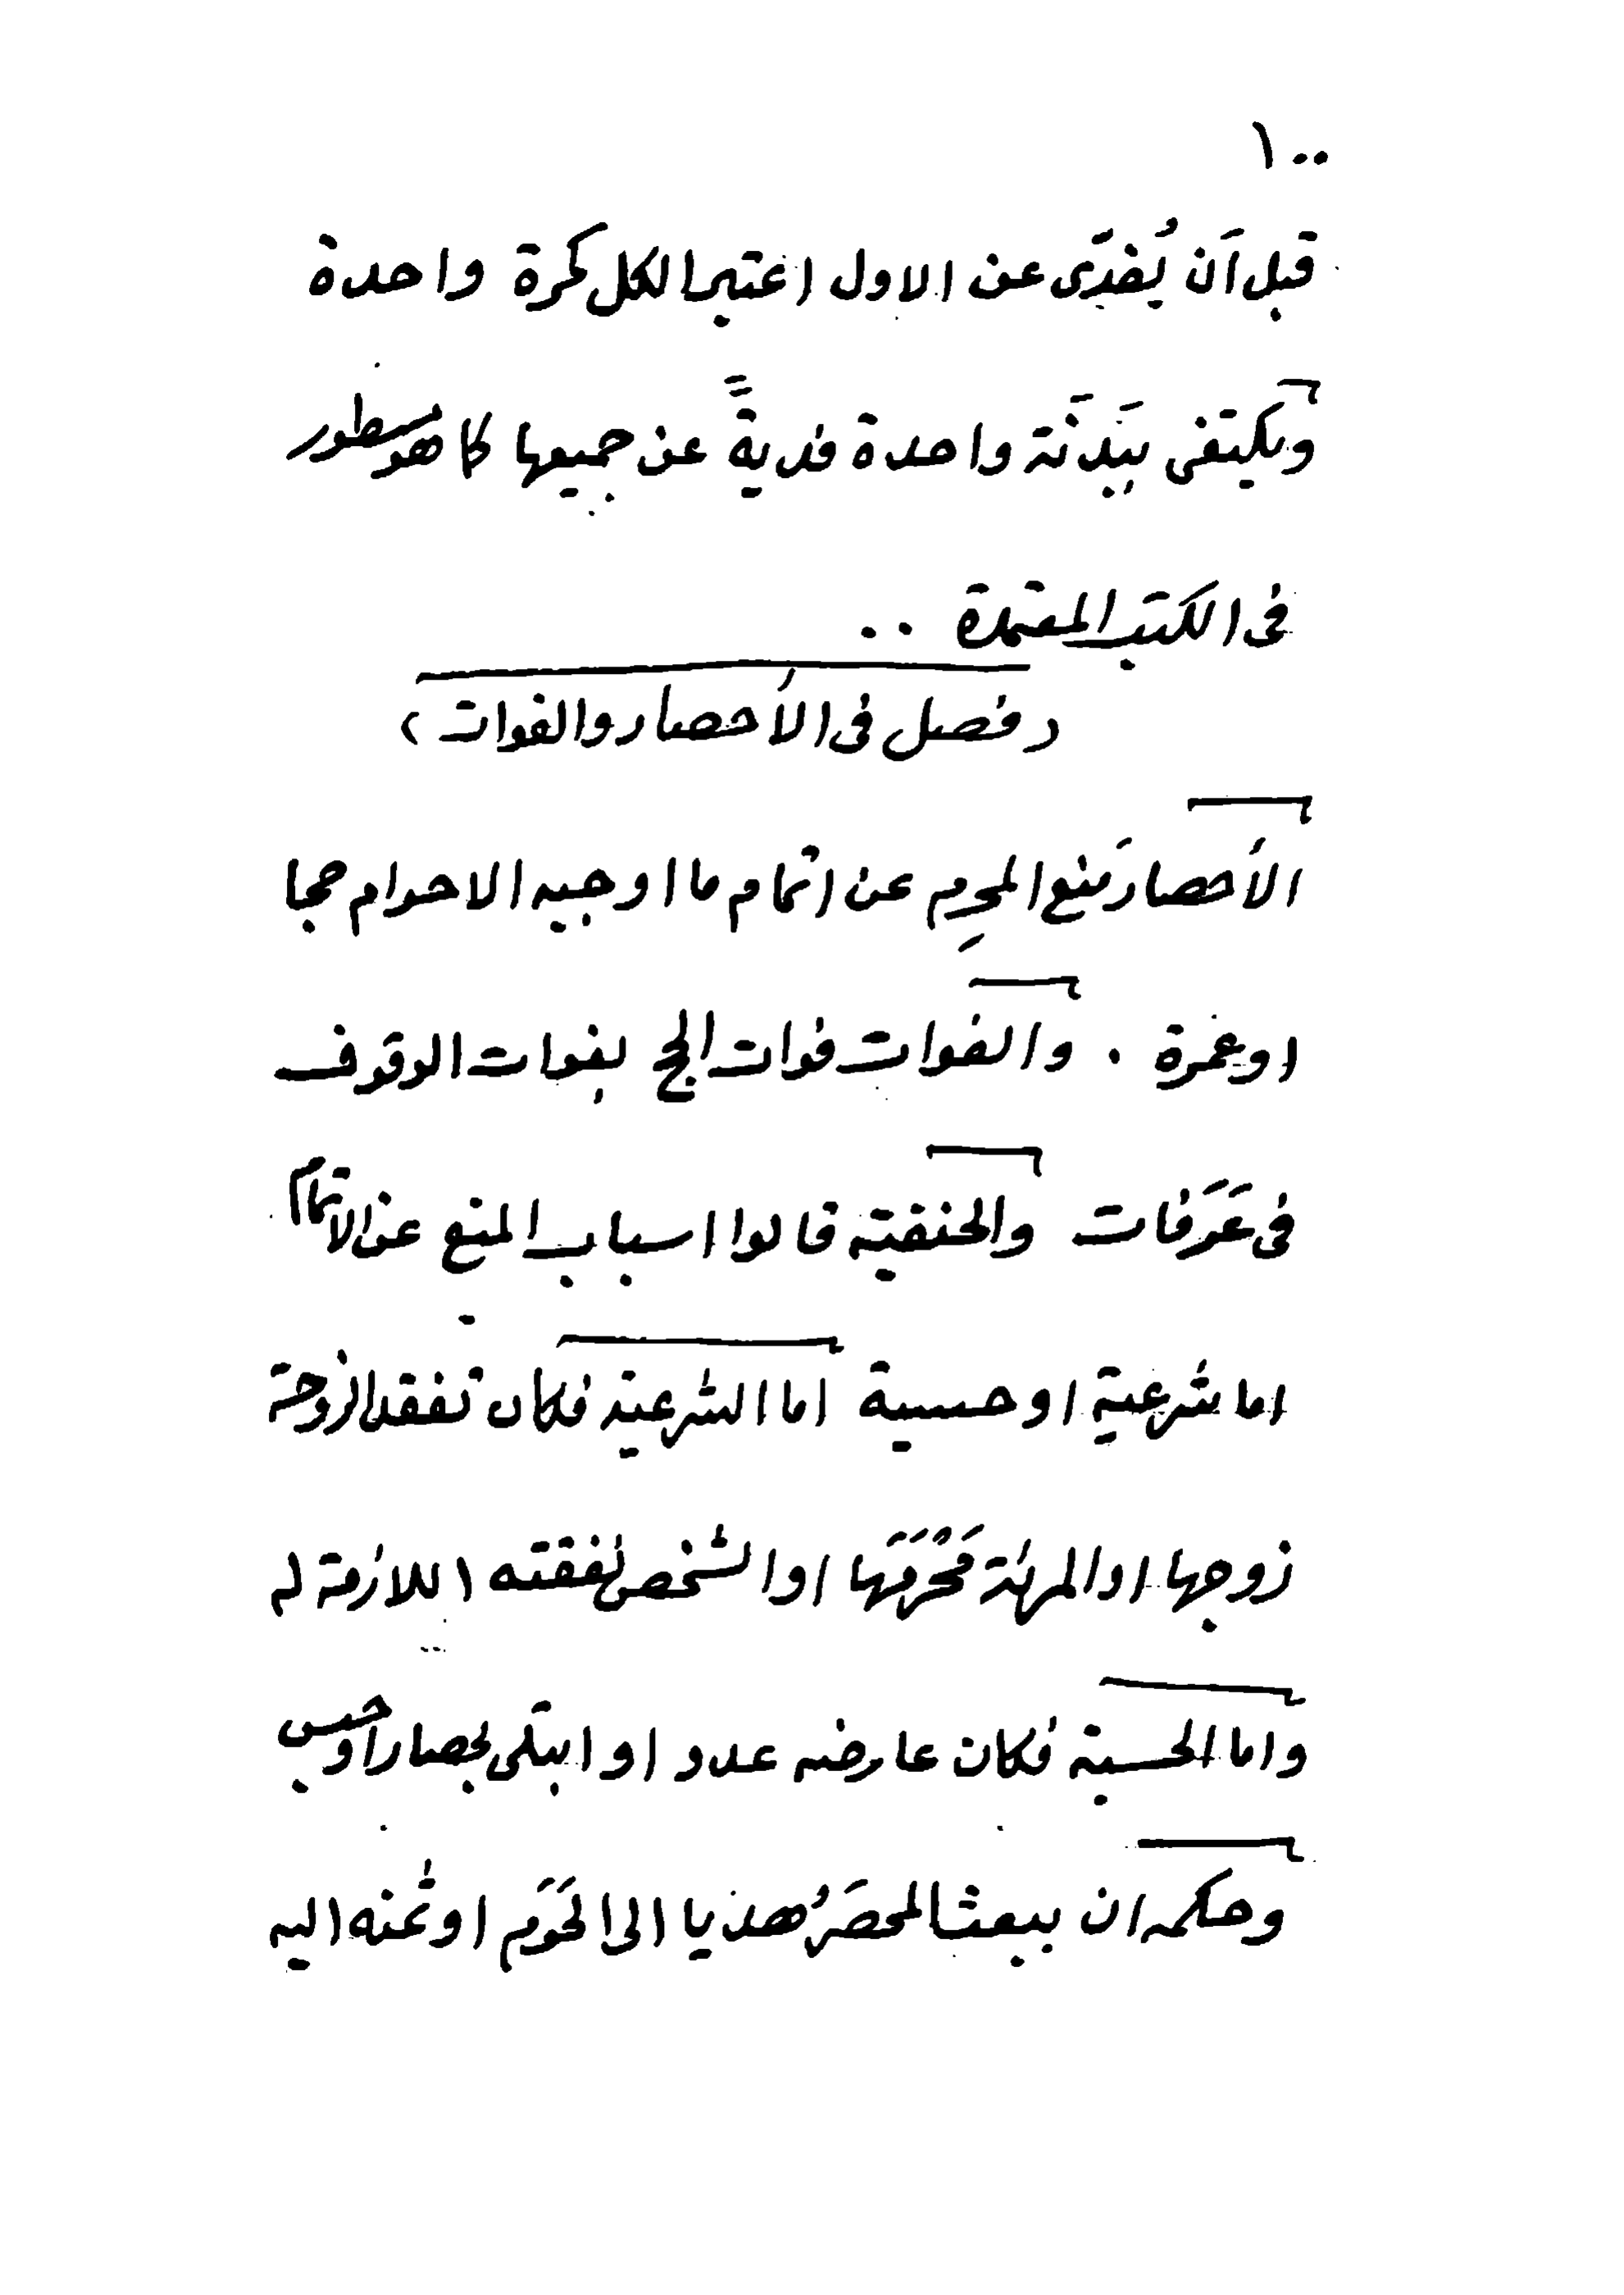 ١٠٠
قبل أن يُفدّى عن الاول اعتبر الكل كمرة واحدة
ويكتفى ببَدَنَة واحدة فديةً عن جميعها كما هو مسطور
فى الكتب المعتمدة ..
( فصل فى الأحصار والفوات )
الأحصار مَنع المحرِم عن اتمام ما اوجبه الاحرام حجا
او عمرة . والفوات فوات الحج بفوات الوقوف
فى عَرَفات والحنفية قالوا اسباب المنع عن الاتمام
اما شرعية او حسية اما الشرعية فكان تفقد الزوجة
زوجها او المرئة مَحْرَمَها او الشخص نفقته اللازمة له
واما الحسية فكان عارضه عدو او ابتلى بحصار أو حبس
وحكمه ان يبعث المحصَرُ هديا الى الحَرَم او ثمنه اليه